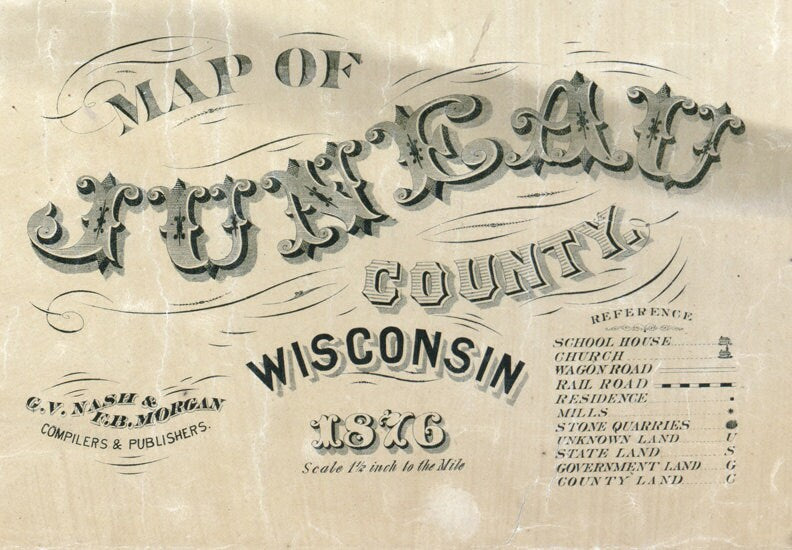 MAP OF
JUNEAU
COUNTY,
WISCONSIN
1876
Scale 1½ inch to the Mile
G.V. NASH &
F.B. MORGAN
COMPILERS & PUBLISHERS.
REFERENCE
SCHOOL HOUSE
CHURCH
WAGON ROAD
RAIL ROAD
RESIDENCE
MILLS
STONE QUARRIES
UNKNOWN LAND U
STATE LAND S
GOVERNMENT LAND G
COUNTY LAND C